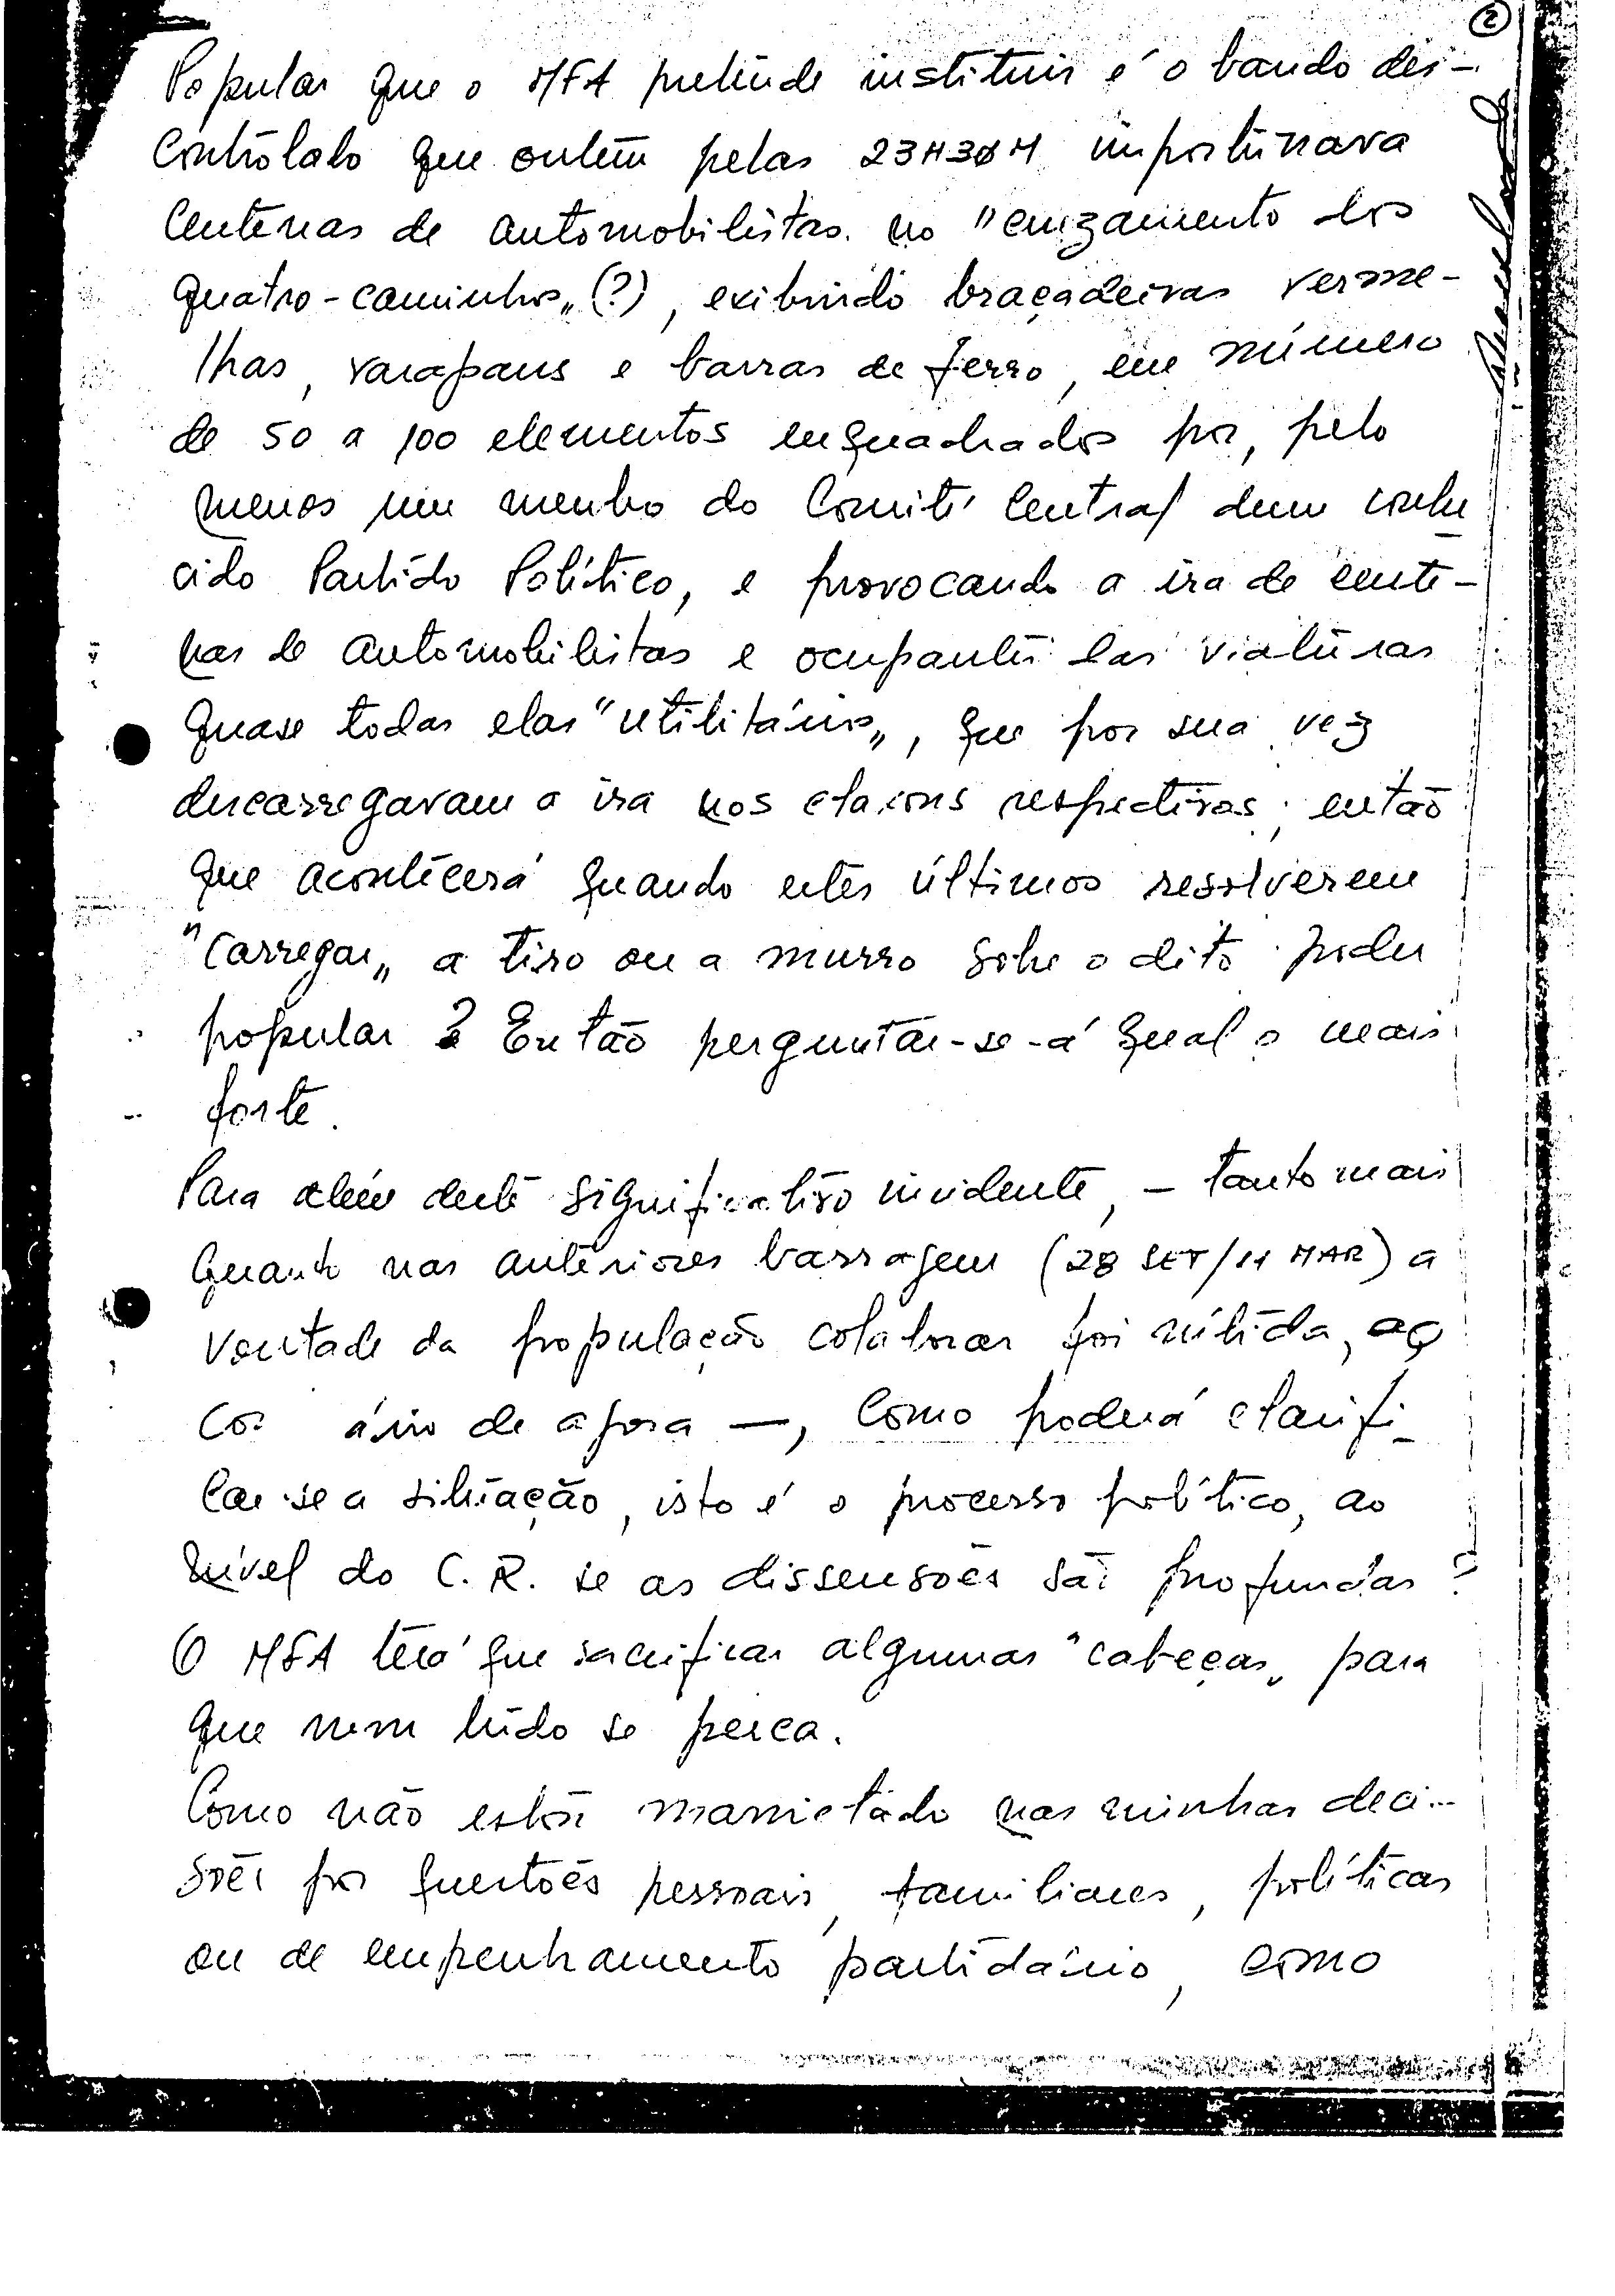 2
Popular que o MFA pretende instituir é o bando des-
contrôlato que ontem pelas 23H30M importunava
centenas de automobilistas. no "cruzamento dos
quatro-caminhos" (?), exibindo braçadeiras verme-
lhas, varapaus e barras de ferro, em número
de 50 a 100 elementos enquadrados por, pelo
menos um membro do Comité Central dum conhe
cido Partido Político, e provocando a ira de cente-
nas de automobilistas e ocupantes das viaturas
quase todas elas "utilitários", que por sua vez
descarregavam a ira nos claxons respectivos; então
que acontecerá quando estes últimos resolverem
"carregar" a tiro ou a murro sobre o dito poder
popular? Então perguntar-se-á qual o mais
forte.
Para além deste significativo incidente, - tanto mais
quanto nas anteriores barragem (28 SET/11 MAR) a
vontade da população colaborar foi nítida, ao
co ário de agora —, como poderá clarifi-
car-se a situação, isto é o processo político, ao
nível do C.R. se as dissensões são profundas?
O MFA terá que sacrificar algumas "cabeças" para
que nem tudo se perca.
Como não estou manietado nas minhas deci-
sões por questões pessoais, familiares, políticas
ou de empenhamento partidário, como